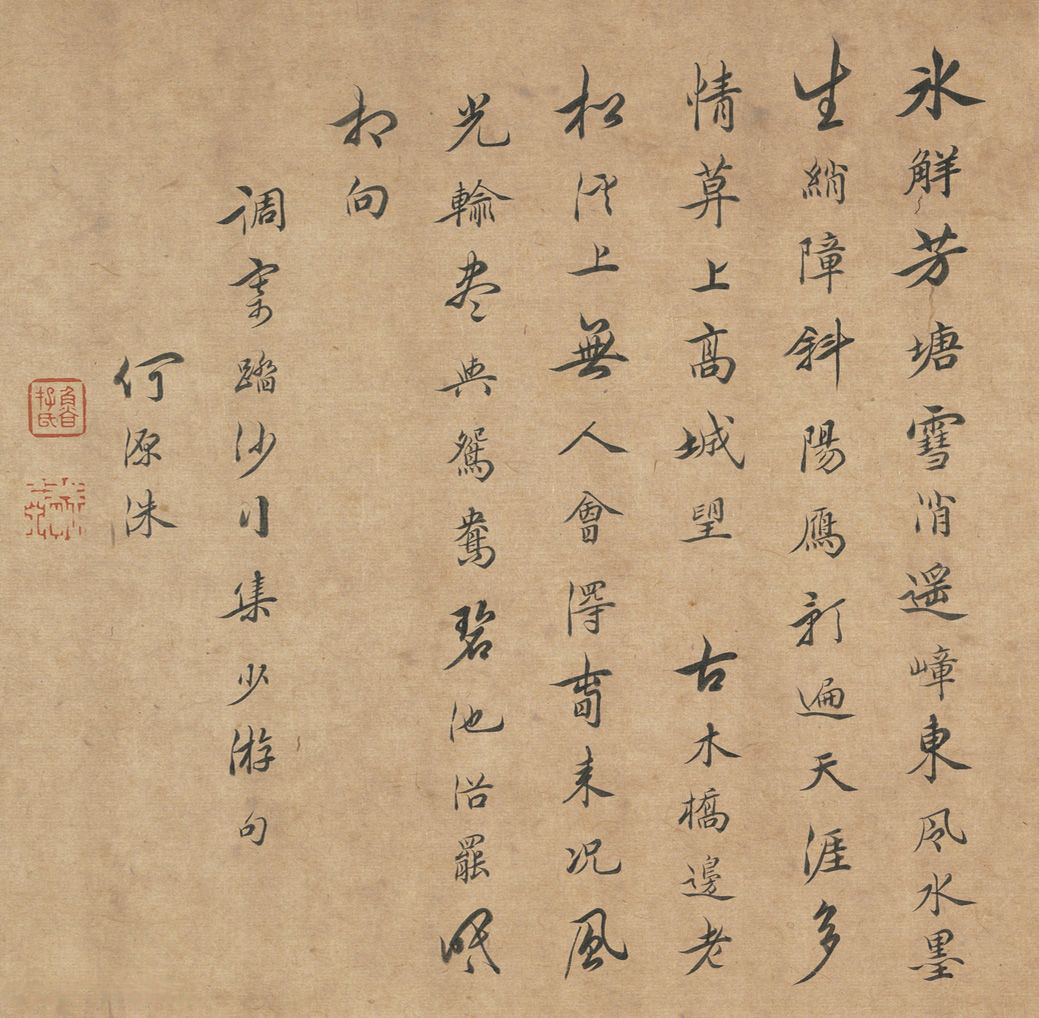 氷解芳塘雪消遥嶂東風水墨
生綃障斜陽雁影遍天涯多
情草上高城望 古木橋邊老
松溪上無人會得畫來況風
光輪盡與鴛鴦碧池浴罷眠
相向
调寄踏沙行集少游句
何源洙